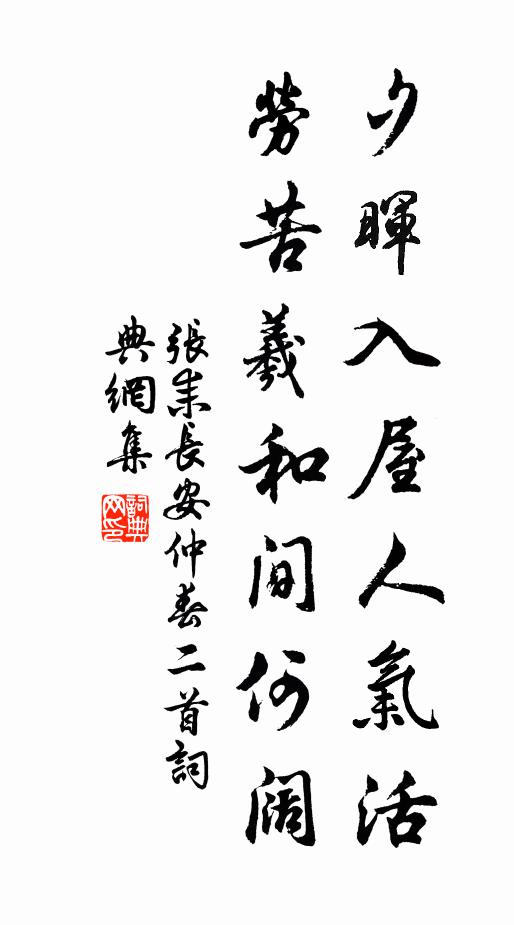 夕暉入屋人氣活
勞苦羲和間何闊
張耒長安仲春二首詞
典網集
詞典
网印